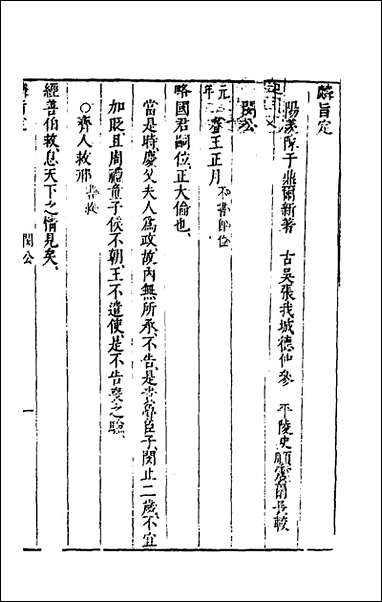 麟旨定
陽羨陳于鼎爾新著 古吳張我城德仲參 平陵史顧 長較
閔公
元年春王正月 不書即位
略國君嗣位正大倫也、
當是時、慶父夫人為政、故內無所承、不告、是 魯臣子、閔止二歲、不宜
加貶、且周禮童子侯不朝、王不遣使、是不告喪之驗、
○齊人救邢 書救
經善伯救、息天下之情見矣、
麟旨定 閔公 一